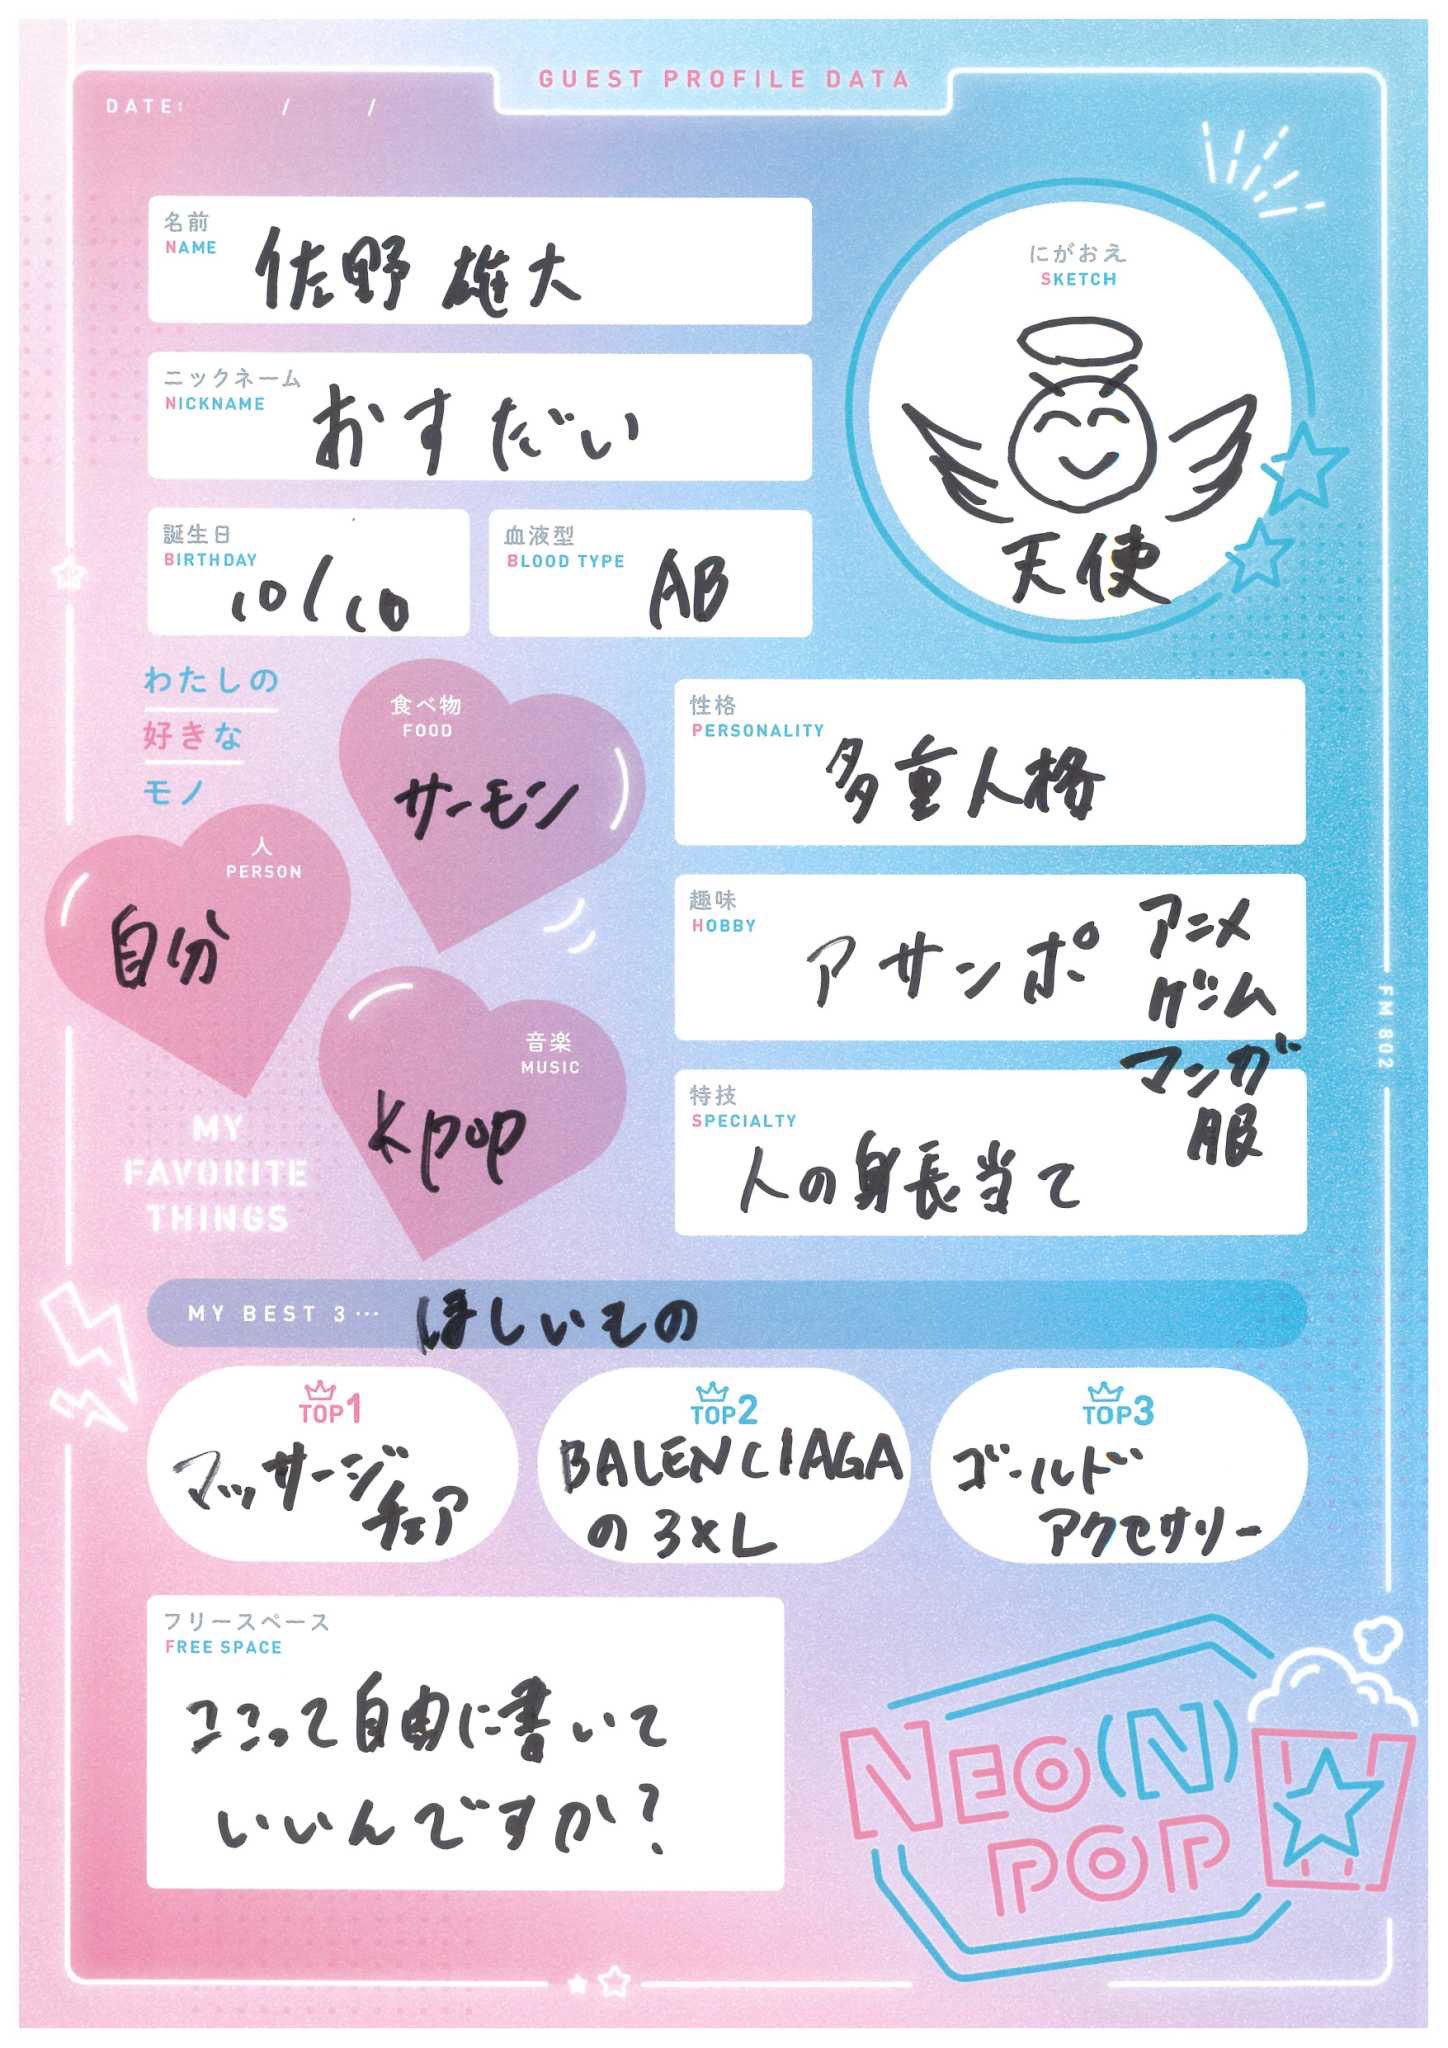 GUEST PROFILE DATA
DATE: / /
名前
NAME
佐野 雄大
ニックネーム
NICKNAME
おすだい
誕生日
BIRTHDAY
10/10
血液型
BLOOD TYPE
AB
にがおえ
SKETCH
天使
わたしの
好きな
モノ
食べ物
FOOD
サーモン
人
PERSON
自分
音楽
MUSIC
kpop
MY
FAVORITE
THINGS
性格
PERSONALITY
多重人格
趣味
HOBBY
アサンポ
アニメ
ゲーム
マンガ
服
特技
SPECIALTY
人の身長当て
FM 802
MY BEST 3… ほしいもの
TOP1
マッサージ
チェア
TOP2
BALENCIAGA
の3XL
TOP3
ゴールド
アクセサリー
フリースペース
FREE SPACE
ここって自由に書いて
いいんですか?
NEO(N)
POP